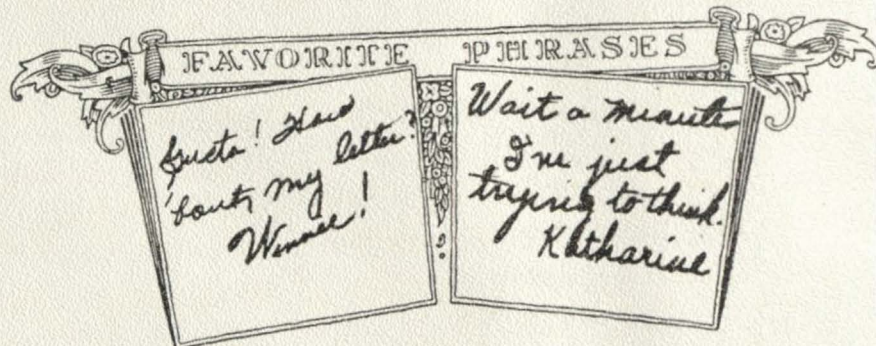 FAVORITE PHRASES
Gusta! How
'bout my letter?
Winnie!
Wait a minute
I'm just
trying to think.
Katharine